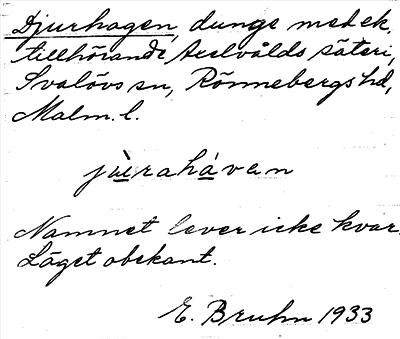 Djurhagen, dunge med ek,
tillhörande Axelvålds säteri,
Svalövs sn, Rönnebergs hd,
Malm. l.
jùrahávan
Namnet lever icke kvar.
Läget obekant.
E. Bruhn 1933